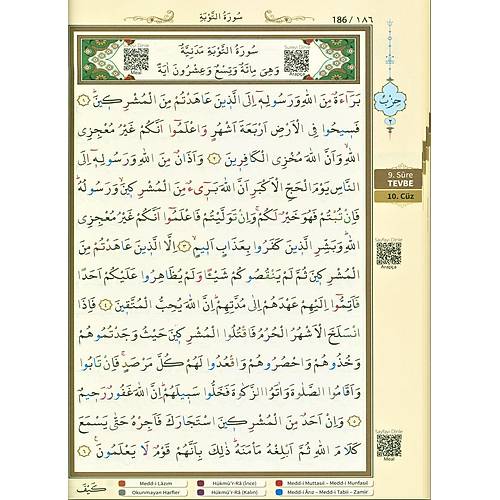 سُورَةُ التَّوْبَةِ
186 / ١٨٦
سُورَةُ التَّوْبَةِ مَدَنِيَّةٌ
وَهِيَ مِائَةٌ وَتِسْعٌ وَعِشْرُونَ اٰيَةً
Meal
Arapça
بَرَٓاءَةٌ مِنَ اللّٰهِ وَرَسُولِه۪ٓ اِلَى الَّذ۪ينَ عَاهَدْتُمْ مِنَ الْمُشْرِك۪ينَۜ ﴿١﴾
فَس۪يحُوا فِي الْاَرْضِ اَرْبَعَةَ اَشْهُرٍ وَاعْلَمُٓوا اَنَّكُمْ غَيْرُ مُعْجِزِي
اللّٰهِۙ وَاَنَّ اللّٰهَ مُخْزِي الْكَافِر۪ينَ ﴿٢﴾ وَاَذَانٌ مِنَ اللّٰهِ وَرَسُولِه۪ٓ اِلَى
النَّاسِ يَوْمَ الْحَجِّ الْاَكْبَرِ اَنَّ اللّٰهَ بَر۪ٓيءٌ مِنَ الْمُشْرِك۪ينَۙ وَرَسُولُهُۜ
فَاِنْ تُبْتُمْ فَهُوَ خَيْرٌ لَكُمْۚ وَاِنْ تَوَلَّيْتُمْ فَاعْلَمُٓوا اَنَّكُمْ غَيْرُ مُعْجِزِي
اللّٰهِۜ وَبَشِّرِ الَّذ۪ينَ كَفَرُوا بِعَذَابٍ اَل۪يمٍۙ ﴿٣﴾ اِلَّا الَّذ۪ينَ عَاهَدْتُمْ مِنَ
الْمُشْرِك۪ينَ ثُمَّ لَمْ يَنْقُصُوكُمْ شَيْـٔاً وَلَمْ يُظَاهِرُوا عَلَيْكُمْ اَحَداً
فَاَتِمُّٓوا اِلَيْهِمْ عَهْدَهُمْ اِلٰى مُدَّتِهِمْۜ اِنَّ اللّٰهَ يُحِبُّ الْمُتَّق۪ينَ ﴿٤﴾ فَاِذَا
انْسَلَخَ الْاَشْهُرُ الْحُرُمُ فَاقْتُلُوا الْمُشْرِك۪ينَ حَيْثُ وَجَدْتُمُوهُمْ
وَخُذُوهُمْ وَاحْصُرُوهُمْ وَاقْعُدُوا لَهُمْ كُلَّ مَرْصَدٍۚ فَاِنْ تَابُوا
وَاَقَامُوا الصَّلٰوةَ وَاٰتَوُا الزَّكٰوةَ فَخَلُّوا سَب۪يلَهُمْۜ اِنَّ اللّٰهَ غَفُورٌ رَح۪يمٌ
﴿٥﴾ وَاِنْ اَحَدٌ مِنَ الْمُشْرِك۪ينَ اسْتَجَارَكَ فَاَجِرْهُ حَتّٰى يَسْمَعَ
كَلَامَ اللّٰهِ ثُمَّ اَبْلِغْهُ مَأْمَنَهُۜ ذٰلِكَ بِاَنَّهُمْ قَوْمٌ لَا يَعْلَمُونَ۟ ﴿٦﴾
كَيْفَ
حِزْبُ
٢
9. Sûre
TEVBE
10. Cüz
Sayfayı Dinle
Arapça
Sayfayı Dinle
Meal
Medd-i Lâzım
Hükmü'r-Râ (İnce)
Medd-i Muttasıl – Medd-i Munfasıl
Okunmayan Harfler
Hükmü'r-Râ (Kalın)
Medd-i Ârız – Medd-i Tabii – Zamir